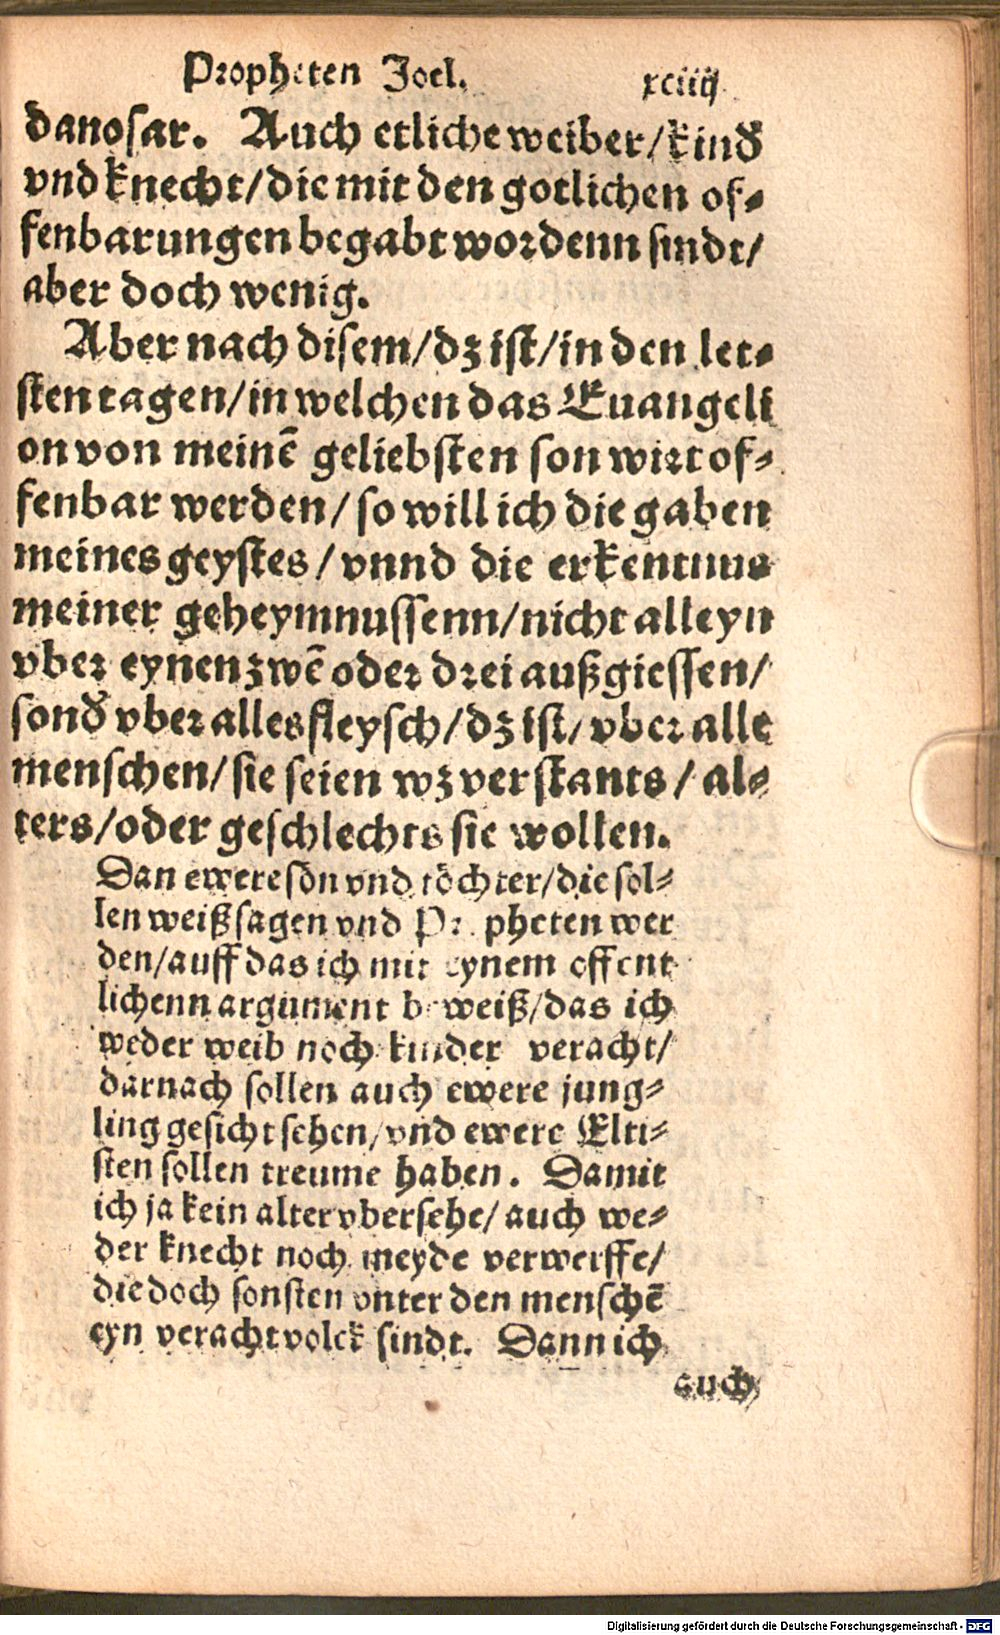 Propheten Joel. xciiij
danosar. Auch etliche weiber/kind̕
vnd knecht/die mit den gotlichen of⸗
fenbarungen begabt wordenn sindt/
aber doch wenig.
Aber nach disem/dz ist/in den let⸗
sten tagen/in welchen das Euangeli
on von meinē geliebsten son wirt of⸗
fenbar werden/so will ich die gaben
meines geystes/vnnd die erkentnus
meiner geheymnussenn/nicht alleyn
vber eynen zwē oder drei außgiessen/
sond̕ vber alles fleysch/dz ist/vber alle
menschen/sie seien wz verstants/al⸗
ters/oder geschlechts sie wollen.
Dan ewere sön vnd töchter/die sol⸗
len weißsagen vnd Propheten wer
den/auff das ich mit eynem offent
lichenn argument beweiß/das ich
weder weib noch kinder veracht/
darnach sollen auch ewere jung⸗
ling gesicht sehen/vnd ewere Elti⸗
sten sollen treume haben. Damit
ich ja kein alter vbersehe/auch we⸗
der knecht noch meyde verwerffe/
die doch sonsten vnter den menschē
eyn veracht volck sindt. Dann ich
auch
Digitalisierung gefördert durch die Deutsche Forschungsgemeinschaft - DFG